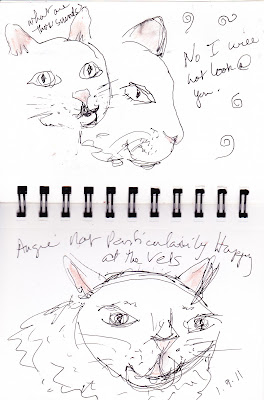 what are
those sounds?
No I will
not look @
you.
Angie Not Particularily Happy
at the Vets
1.9.11